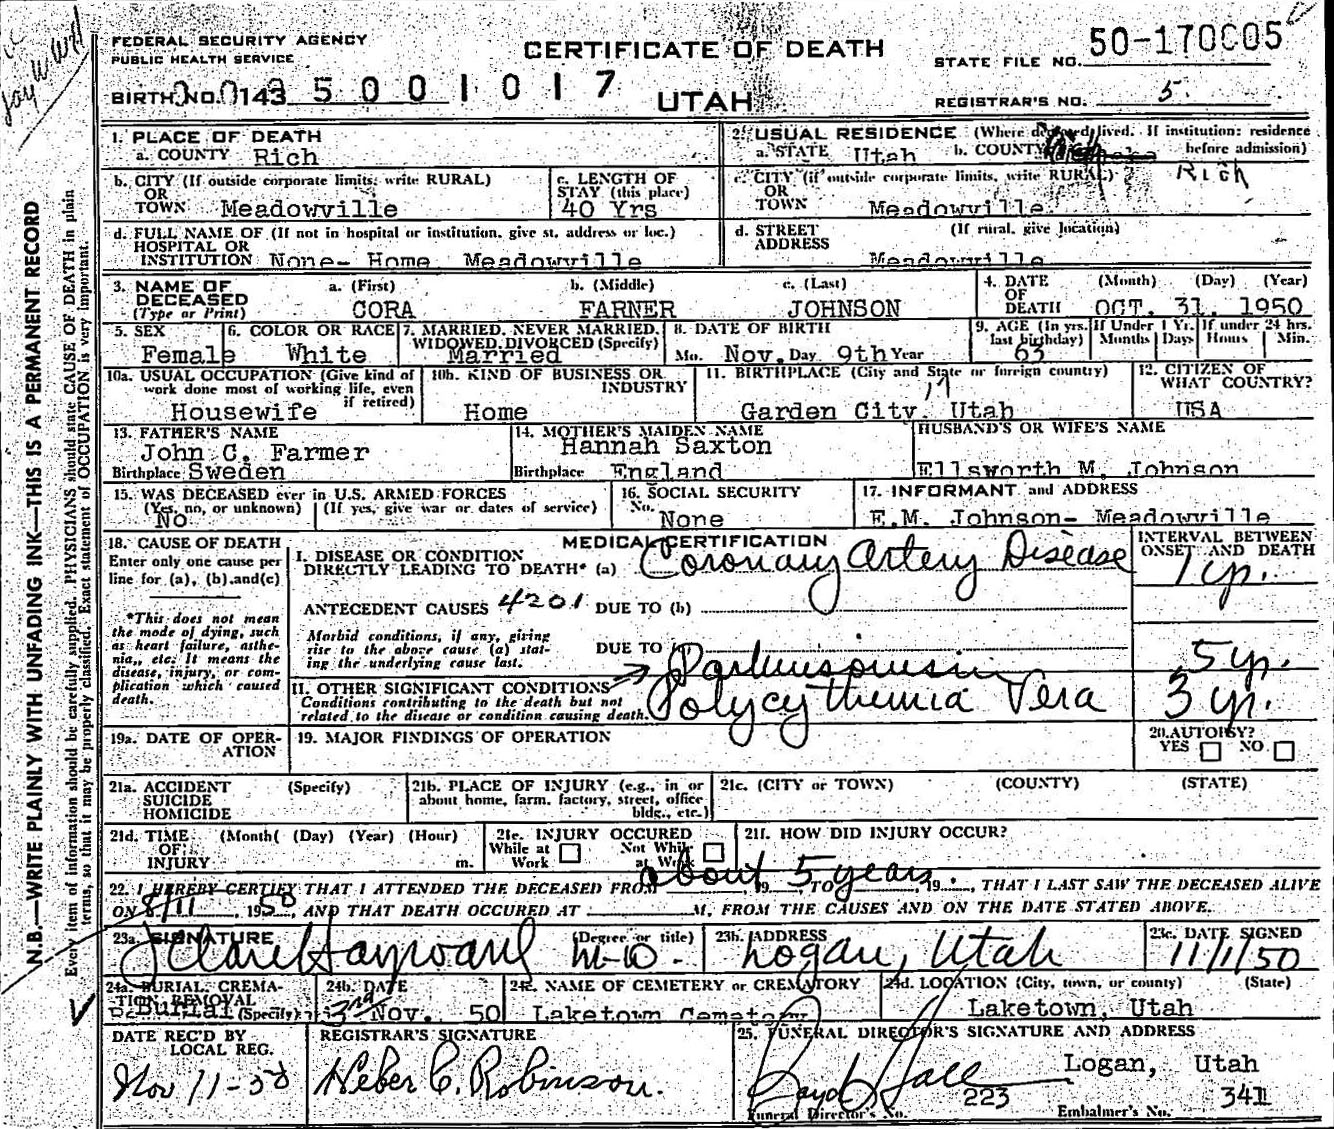 FEDERAL SECURITY AGENCY
PUBLIC HEALTH SERVICE
CERTIFICATE OF DEATH
STATE FILE NO. 50-170005
BIRTH NO. 0143 5001017
UTAH
REGISTRAR'S NO. 5
1. PLACE OF DEATH
a. COUNTY Rich
2. USUAL RESIDENCE (Where deceased lived. If institution: residence before admission)
a. STATE Utah b. COUNTY Rich
b. CITY (If outside corporate limits, write RURAL)
OR
TOWN Meadowville
c. LENGTH OF
STAY (this place)
40 Yrs
c. CITY (if outside corporate limits, write RURAL)
OR
TOWN Meadowville
d. FULL NAME OF (If not in hospital or institution, give st. address or loc.)
HOSPITAL OR
INSTITUTION None- Home Meadowville
d. STREET (If rural, give location)
ADDRESS Meadowville
3. NAME OF
DECEASED
(Type or Print)
a. (First) b. (Middle) c. (Last)
CORA FARNER JOHNSON
4. DATE (Month) (Day) (Year)
OF
DEATH OCT. 31, 1950
5. SEX
Female
6. COLOR OR RACE
White
7. MARRIED, NEVER MARRIED,
WIDOWED, DIVORCED (Specify)
Married
8. DATE OF BIRTH
Mo. Nov. Day 9th Year
9. AGE (In yrs. last birthday)
63
If Under 1 Yr.
Months Days
If under 24 hrs.
Hours Min.
10a. USUAL OCCUPATION (Give kind of
work done most of working life, even
if retired)
Housewife
10b. KIND OF BUSINESS OR
INDUSTRY
Home
11. BIRTHPLACE (City and State or foreign country)
Garden City, Utah 17
12. CITIZEN OF
WHAT COUNTRY?
USA
13. FATHER'S NAME
John C. Farmer
Birthplace Sweden
14. MOTHER'S MAIDEN NAME
Hannah Saxton
Birthplace England
HUSBAND'S OR WIFE'S NAME
Ellsworth M. Johnson
15. WAS DECEASED ever in U.S. ARMED FORCES
(Yes, no, or unknown) (If yes, give war or dates of service)
No
16. SOCIAL SECURITY
No.
None
17. INFORMANT and ADDRESS
E.M. Johnson- Meadowville
18. CAUSE OF DEATH
Enter only one cause per
line for (a), (b) and (c)
*This does not mean
the mode of dying, such
as heart failure, asthe-
nia, etc. It means the
disease, injury, or com-
plication which caused
death.
MEDICAL CERTIFICATION
INTERVAL BETWEEN
ONSET AND DEATH
I. DISEASE OR CONDITION
DIRECTLY LEADING TO DEATH* (a) Coronary Artery Disease 1 yr.
ANTECEDENT CAUSES 4201 DUE TO (b)
Morbid conditions, if any, giving
rise to the above cause (a) stat-
ing the underlying cause last.
DUE TO
Parkinsonism 5 yr.
II. OTHER SIGNIFICANT CONDITIONS
Conditions contributing to the death but not
related to the disease or condition causing death.
Polycythemia Vera 3 yr.
19a. DATE OF OPER-
ATION
19. MAJOR FINDINGS OF OPERATION
20. AUTOPSY?
YES NO
21a. ACCIDENT (Specify)
SUICIDE
HOMICIDE
21b. PLACE OF INJURY (e.g., in or
about home, farm, factory, street, office
bldg., etc.)
21c. (CITY or TOWN) (COUNTY) (STATE)
21d. TIME (Month( (Day) (Year) (Hour)
OF
INJURY m.
21e. INJURY OCCURED
While at Work Not While at Work
21f. HOW DID INJURY OCCUR?
22. I HEREBY CERTIFY THAT I ATTENDED THE DECEASED FROM about 19 5 TO years, 19, THAT I LAST SAW THE DECEASED ALIVE
ON 8/11, 1950, AND THAT DEATH OCCURED AT M, FROM THE CAUSES AND ON THE DATE STATED ABOVE.
23a. SIGNATURE (Degree or title)
J Clare Hayward M-D-
23b. ADDRESS
Logan, Utah
23c. DATE SIGNED
11/1/50
24a. BURIAL, CREMA-
TION, REMOVAL
(Specify)
Burial
24b. DATE
3rd Nov. 50
24c. NAME OF CEMETERY or CREMATORY
Laketown Cemetery
24d. LOCATION (City, town, or county) (State)
Laketown, Utah
DATE REC'D BY
LOCAL REG.
Nov 11-50
REGISTRAR'S SIGNATURE
Heber C. Robinson.
25. FUNERAL DIRECTOR'S SIGNATURE AND ADDRESS
Boyd Hall Logan, Utah
223 341
Funeral Director's No. Embalmer's No.
N.B.—WRITE PLAINLY WITH UNFADING INK—THIS IS A PERMANENT RECORD
Every item of information should be carefully supplied. PHYSICIANS should state CAUSE OF DEATH in plain
terms, so that it may be properly classified. Exact statement of OCCUPATION is very important.